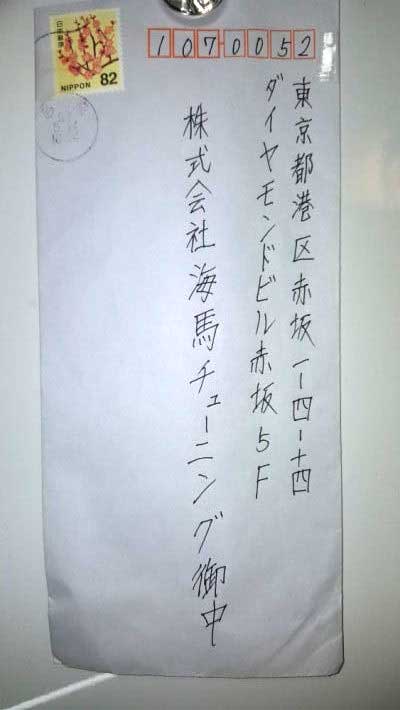 日本郵便
82
NIPPON
1070052
東京都港区赤坂一ー四ー十四
ダイヤモンドビル赤坂5F
株式会社海馬チューニング御中